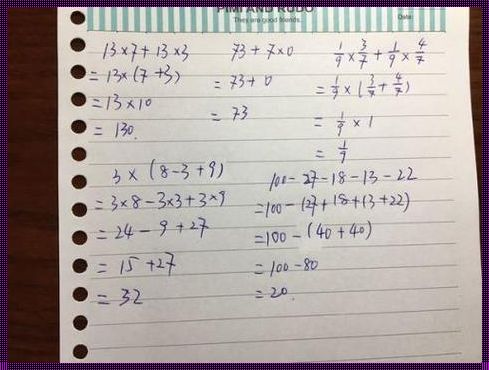 PIMI AND RODO
They are good friends.
Date:
13×7+13×3
=13×(7+3)
=13×10
=130.
73+7×0
=73+0
=73
1/9×3/7+1/9×4/7
=1/9×(3/7+4/7)
=1/9×1
=1/9
3×(8-3+9)
=3×8-3×3+3×9
=24-9+27
=15+27
=32
100-27-18-13-22
=100-(27+18+13+22)
=100-(40+40)
=100-80
=20.